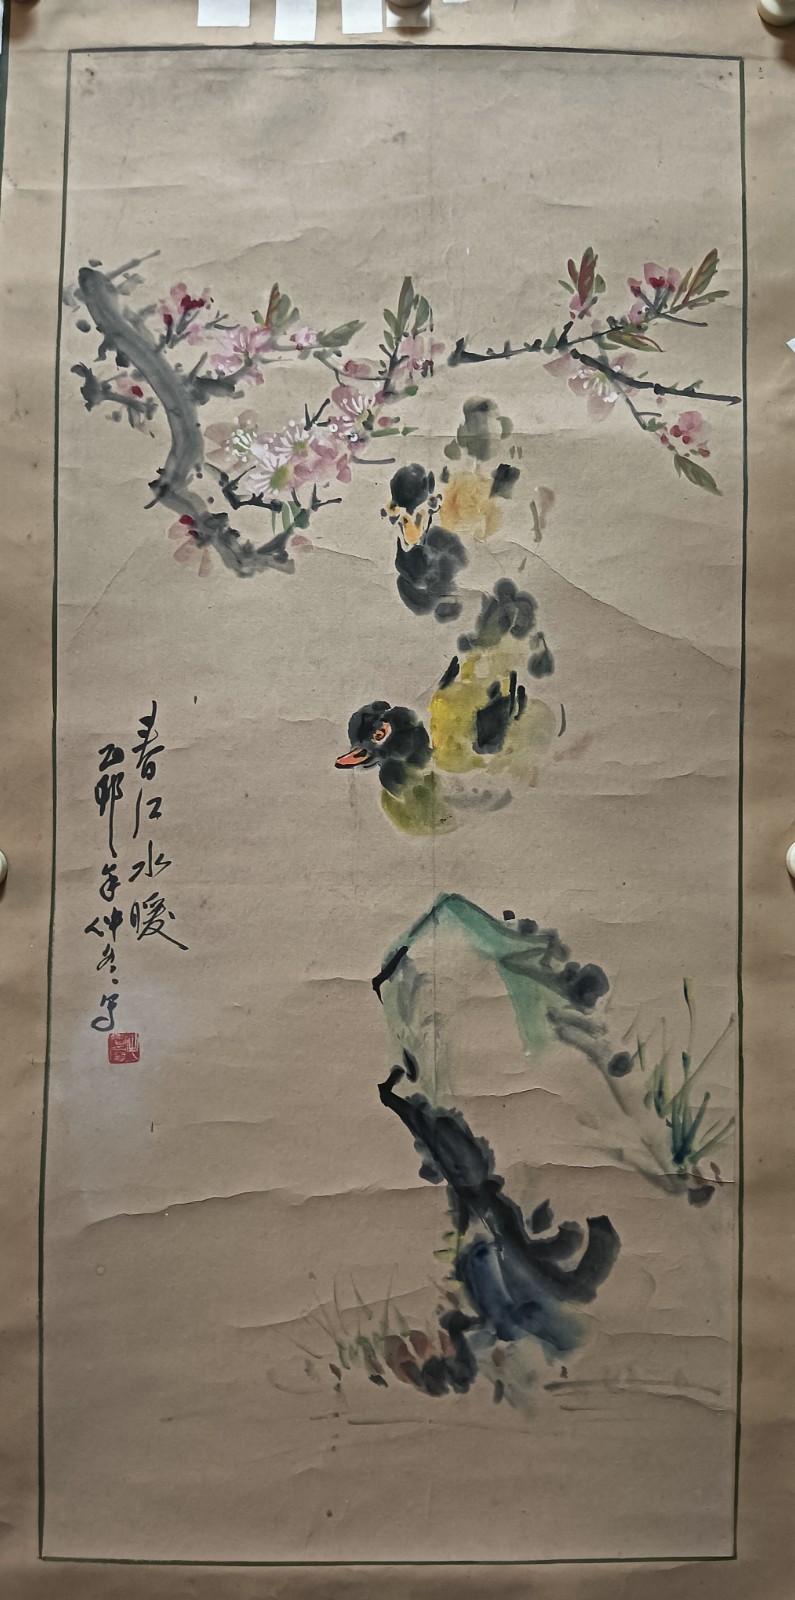 春江水暖
乙酉年仲冬写